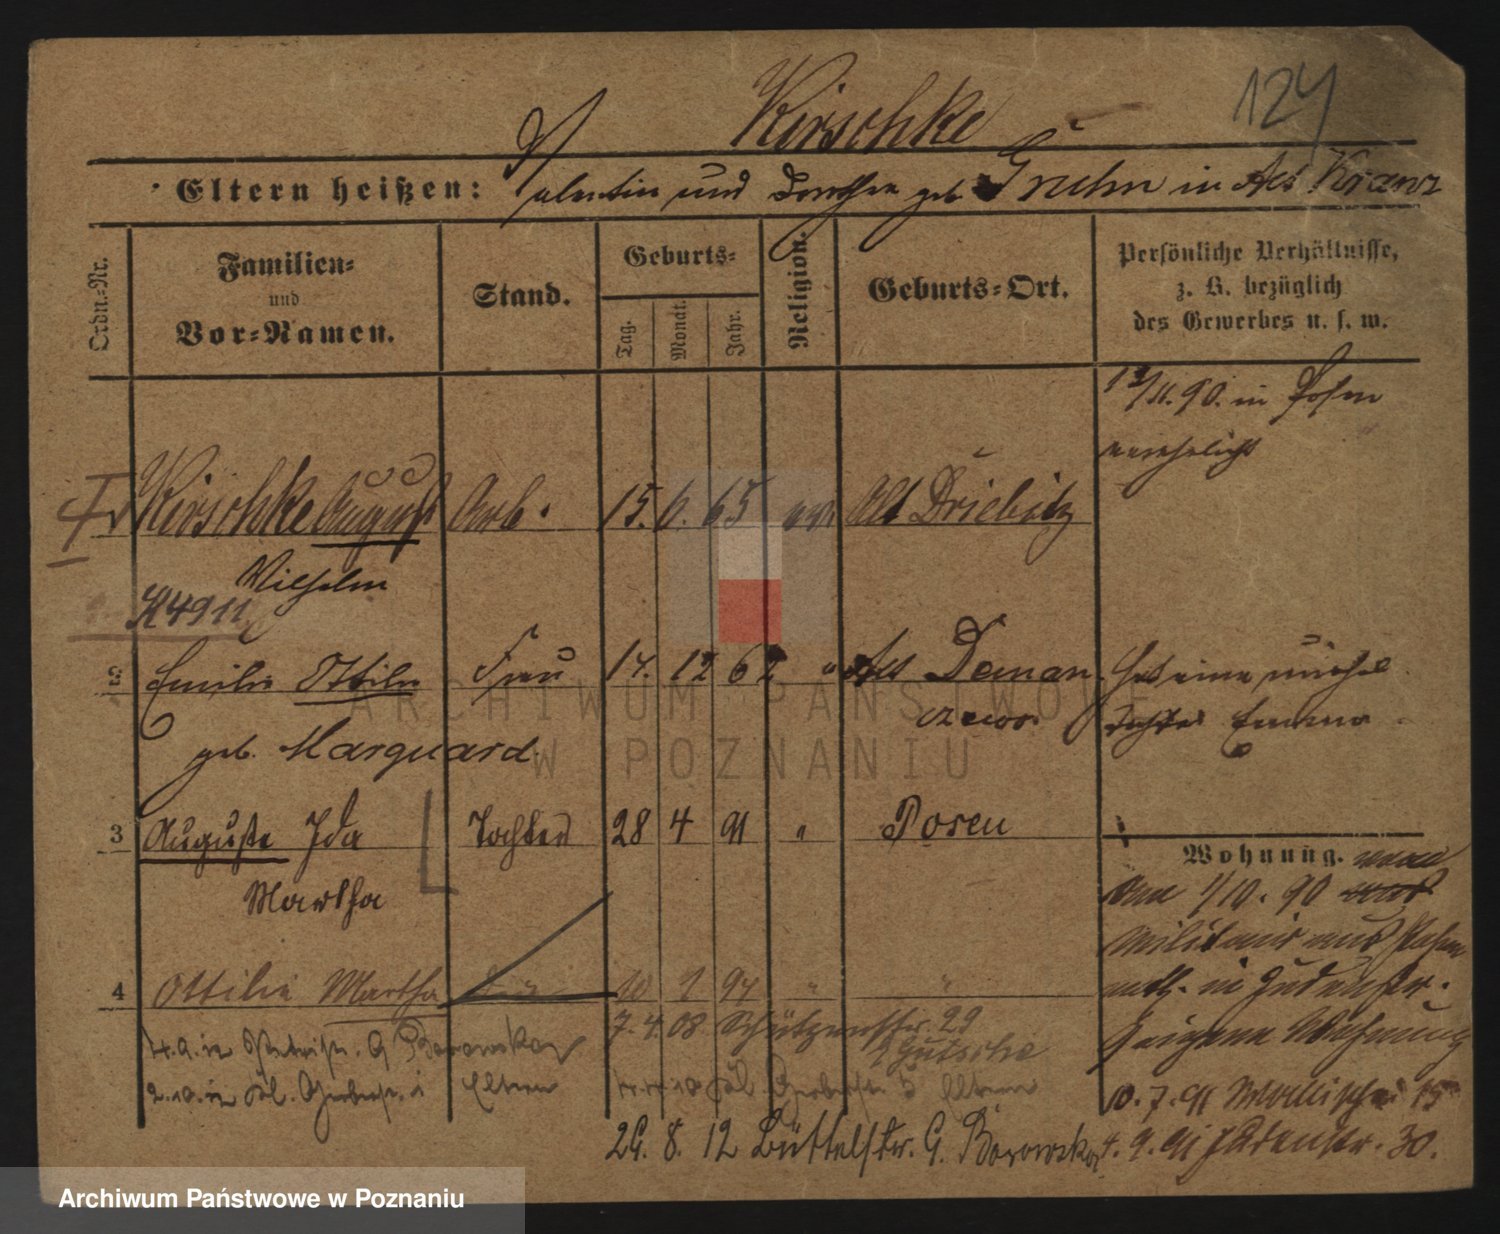 124
Kirschke
Eltern heißen: Valentin und Dorothea geb. Gruhn in Alt Kranz
Ordn.-Nr.
Familien- und Vor-Namen.
Stand.
Geburts-
Tag. Monat. Jahr.
Religion.
Geburts-Ort.
Persönliche Verhältnisse,
z. B. bezüglich
des Gewerbes u. s. w.
11.90. in Posen
verehelicht
Kirschke August Arb. 15. 6. 65 ev. Alt Driebitz
Wilhelm
K4911
2 Emilie Ottilie Frau 17. 12 62 " Alt Deman
czewo.
Hat eine unehel.
Tochter Emma
geb. Marquard
3 Auguste Ida Tochter 28 4 91 " Posen
Martha
4 Ottilie Martha 10 1 94 " "
Wohnung.
den 1/10. 90
Militair aus Posen
in Judenstr.
eigene Wohnung
10. 7. 91 Wallischei 15
4. 9. 91 Judenstr. 30.
7. 4. 08 Schützenstr. 29
Gutsche
Borowska
Eltern
Eltern
26. 8. 12 Büttelstr. G. Borowska
ARCHIWUM PAŃSTWOWE
W POZNANIU
Archiwum Państwowe w Poznaniu